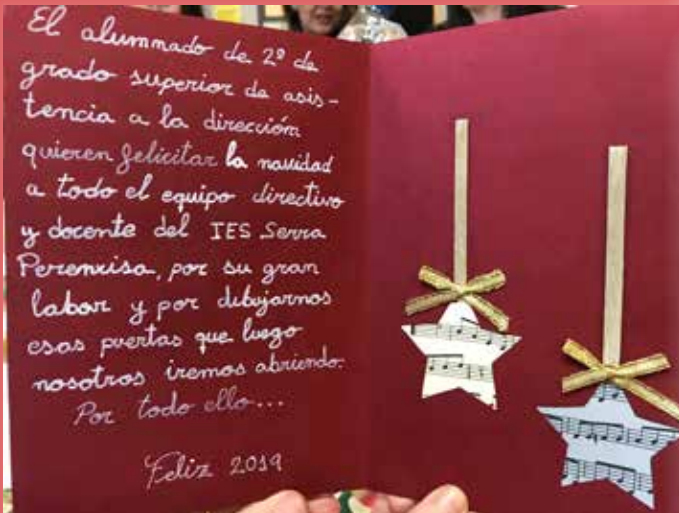 El alumnado de 2º de
grado superior de asis-
tencia a la dirección
quieren felicitar la navidad
a todo el equipo directivo
y docente del IES Serra
Perenxisa, por su gran
labor y por dibujarnos
esas puertas que luego
nosotros iremos abriendo.
Por todo ello...
Feliz 2019